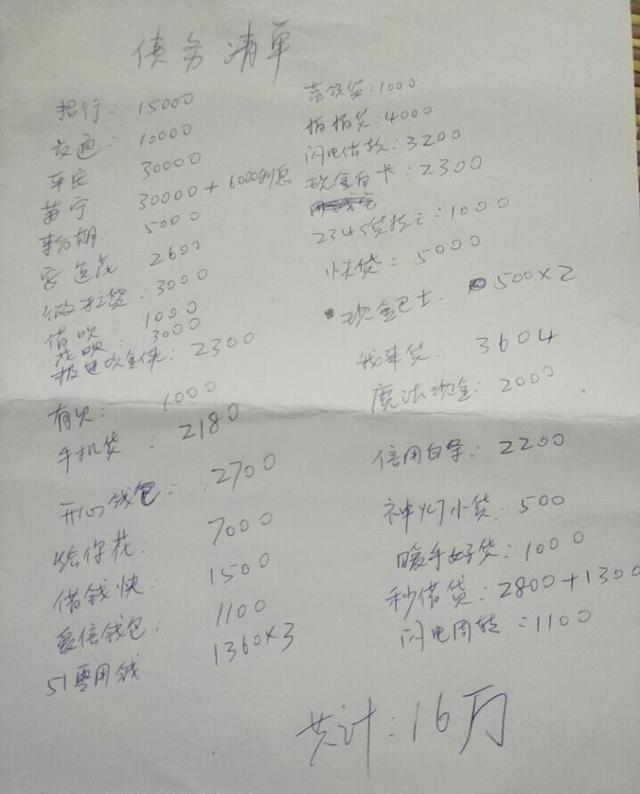 债务清单
招行: 15000
交通: 10000
平安 30000
苏宁 30000+6000利息
5000
2600
微粒贷: 3000
借呗: 1000
花呗: 3000
极速现金侠: 2300
有钱: 1000
手机贷: 2180
开心钱包: 2700
给你花 7000
借钱快 1500
爱信钱包: 1100
51零用钱 1360×3
1000
拍拍贷: 4000
闪电借款: 3200
现金白卡: 2300
2345贷款王: 1000
快贷: 5000
现金巴士: 500×2
我来贷: 3604
魔法现金: 2000
信用白条: 2200
神灯小贷: 500
暖手好贷: 1000
秒借贷: 2800+1300
闪电周转: 1100
共计: 16万